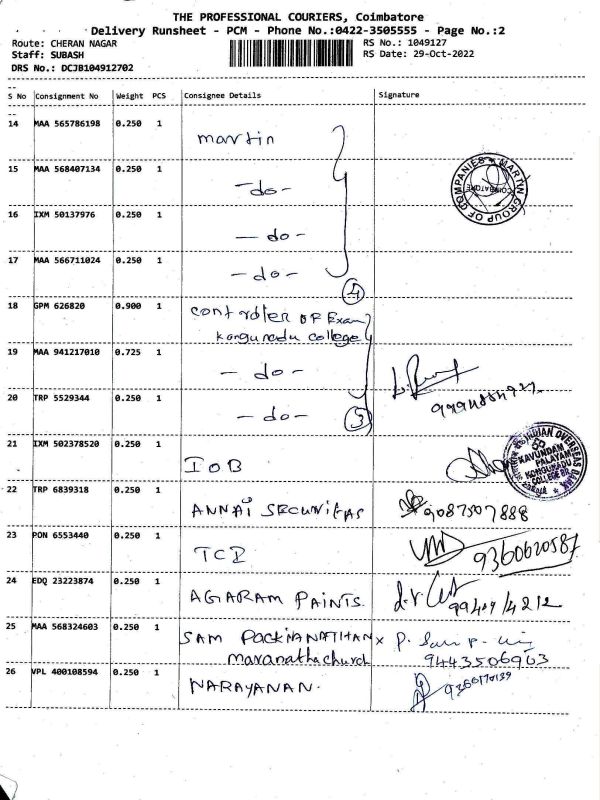 THE PROFESSIONAL COURIERS, Coimbatore
Delivery Runsheet - PCM - Phone No.:0422-3505555 - Page No.:2
Route: CHERAN NAGAR
RS No.: 1049127
Staff: SUBASH
RS Date: 29-Oct-2022
DRS No.: DCJB104912702
S No Consignment No Weight PCS Consignee Details Signature
14 MAA 565786198 0.250 1
martin
15 MAA 568407134 0.250 1
- do -
MARTIN GROUP OF COMPANIES
COIMBATORE
16 IXM 50137976 0.250 1
- do -
17 MAA 566711024 0.250 1
- do -
4
18 GPM 626820 0.900 1
controller of Exam
Kongunadu college
19 MAA 941217010 0.725 1
- do -
20 TRP 5529344 0.250 1
- do -
3
21 IXM 502378520 0.250 1
IOB
INDIAN OVERSEAS BANK
KAVUNDAM
PALAYAM
KONGUNADU
COLLEGE BR.
22 TRP 6839318 0.250 1
ANNAI SECURITAS
9087507888
23 PON 6553440 0.250 1
TCI
9360620587
24 EDQ 23223874 0.250 1
AGARAM PAINTS.
25 MAA 568324603 0.250 1
SAM
maranatha church
9443506903
26 VPL 400108594 0.250 1
NARAYANAN.